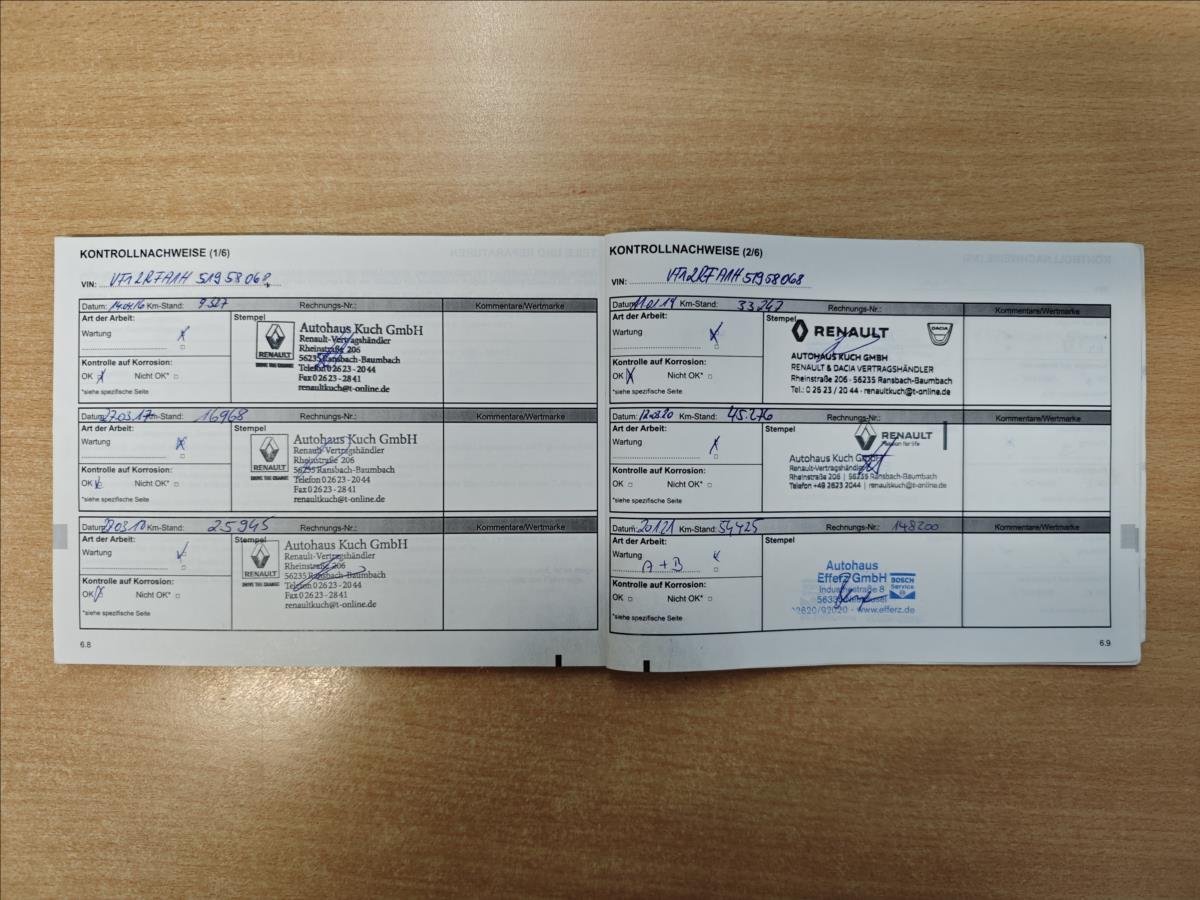 KONTROLLNACHWEISE (1/6)
VIN: VF12RFA1H 51958068
Datum: 14.04.16 Km-Stand: 9327 Rechnungs-Nr.: Kommentare/Wertmarke
Art der Arbeit: Stempel
Wartung
Kontrolle auf Korrosion:
OK Nicht OK*
*siehe spezifische Seite
RENAULT
DRIVE THE CHANGE
Autohaus Kuch GmbH
Renault-Vertragshändler
Rheinstraße 206
56235 Ransbach-Baumbach
Telefon 0 26 23 - 20 44
Fax 0 26 23 - 28 41
renaultkuch@t-online.de
Datum: 27.03.17 Km-Stand: 16968 Rechnungs-Nr.: Kommentare/Wertmarke
Art der Arbeit: Stempel
Wartung
Kontrolle auf Korrosion:
OK Nicht OK*
*siehe spezifische Seite
RENAULT
DRIVE THE CHANGE
Autohaus Kuch GmbH
Renault-Vertragshändler
Rheinstraße 206
56235 Ransbach-Baumbach
Telefon 0 26 23 - 20 44
Fax 0 26 23 - 28 41
renaultkuch@t-online.de
Datum: Km-Stand: 25945 Rechnungs-Nr.: Kommentare/Wertmarke
Art der Arbeit: Stempel
Wartung
Kontrolle auf Korrosion:
OK Nicht OK*
*siehe spezifische Seite
RENAULT
DRIVE THE CHANGE
Autohaus Kuch GmbH
Renault-Vertragshändler
Rheinstraße 206
56235 Ransbach-Baumbach
Telefon 0 26 23 - 20 44
Fax 0 26 23 - 28 41
renaultkuch@t-online.de
6.8
KONTROLLNACHWEISE (2/6)
VIN: VF12RFA1H 51958068
Datum: 11.01.19 Km-Stand: 33247 Rechnungs-Nr.: Kommentare/Wertmarke
Art der Arbeit: Stempel
Wartung
Kontrolle auf Korrosion:
OK Nicht OK*
*siehe spezifische Seite
RENAULT DACIA
AUTOHAUS KUCH GMBH
RENAULT & DACIA VERTRAGSHÄNDLER
Rheinstraße 206 · 56235 Ransbach-Baumbach
Tel.: 0 26 23 / 20 44 · renaultkuch@t-online.de
Datum: Km-Stand: 45.276 Rechnungs-Nr.: Kommentare/Wertmarke
Art der Arbeit: Stempel
Wartung
Kontrolle auf Korrosion:
OK Nicht OK*
*siehe spezifische Seite
RENAULT
Passion for life
Autohaus Kuch GmbH
Renault-Vertragshändler
Rheinstraße 206 | 56235 Ransbach-Baumbach
Telefon +49 2623 2044 | renaultkuch@t-online.de
Datum: Km-Stand: 54425 Rechnungs-Nr.: 148200 Kommentare/Wertmarke
Art der Arbeit: Stempel
Wartung
A + B
Kontrolle auf Korrosion:
OK Nicht OK*
*siehe spezifische Seite
Autohaus
Efferz GmbH
Industriestraße 8
BOSCH
Service
02620/92020 - www.efferz.de
6.9